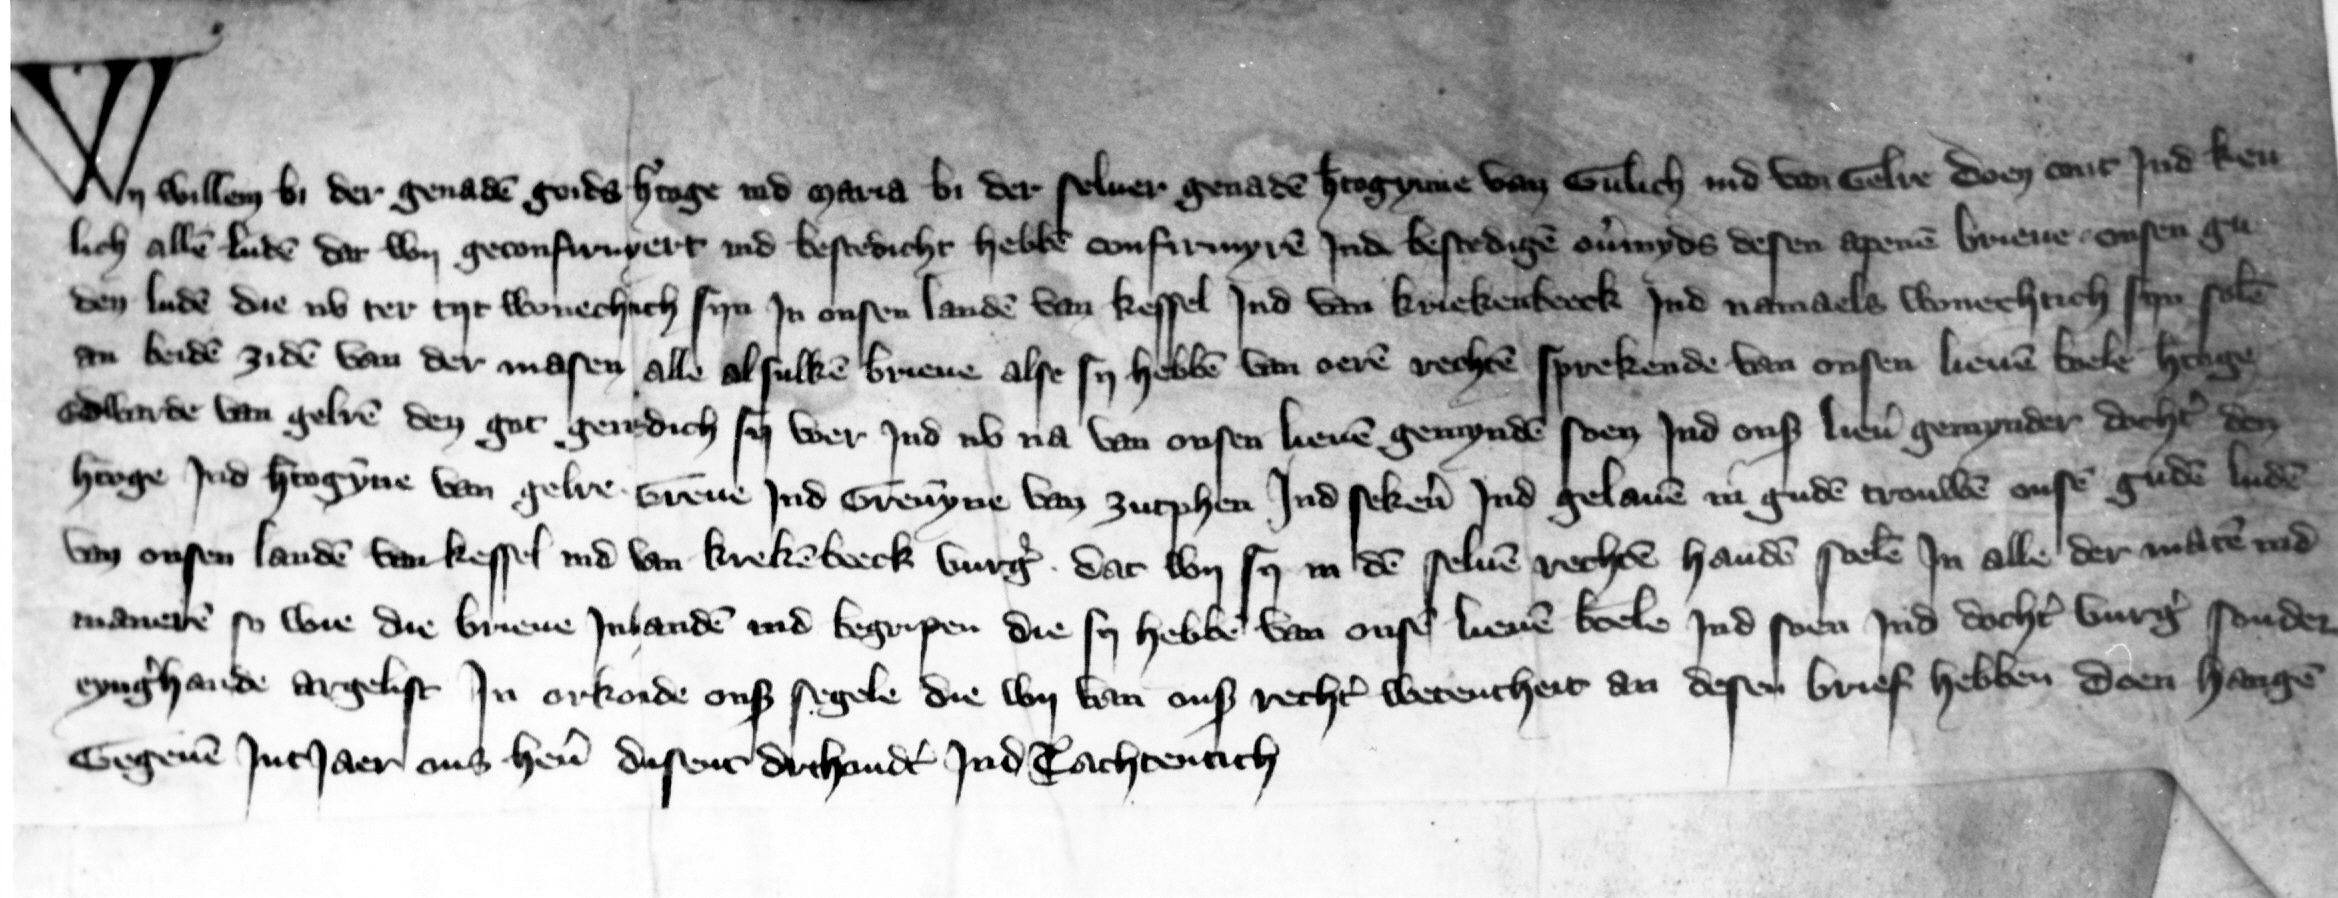 Wy willem bi der genadē goids h̄toge ind maria bi der seluer genadē h̄togynne van Gulich ind van Gelre doen cont Jnd ken
lich allē ludē dat wy geconfirmyert ind bestedicht hebbē confirmyrē Jnde bestedigē ou̓myds desen apenē brieue onsen gu
den ludē die nv ter tyt wonechtich syn Jn onsen landē van kessel Jnd van kriekenbeeck Jnd namaels wonechtich syn solē
an beidē zidē van der masen alle alsulkē brieue alse sy hebbē van oerē rechtē sprekende van onsen lieuē boele h̄toge
edwarde van gelrē den got genedich sy voer Jnd nv na van onsen lieuē gemyndē soen Jnd onser lieu̓ gemynder docht̓ den
h̄toge Jnd h̄togȳne van gelre Greue Jnd Greuȳne van zutphen Jnd seken̓ Jnd gelauē in gudē trouwē onsē gudē ludē
van onsen landē van kessel ind van krekēbeeck vurg̓ dat wy sy in dē seluē rechtē haudē soelē Jn alle der matē ind
manierē so wie die brieue Jnhaudē ind begripen die sy hebbē van onsē lieuē boele Jnd soen Jnd docht̓ vurg̓ sonder
eyng̓hande argelist Jn orkonde onser segele die wy van onser recht̓ wetentheit an desen brief hebben doen hangē
Gegeuē Jnt Jaer ons herē dusent driehondt̓ Jnd Tachtentich